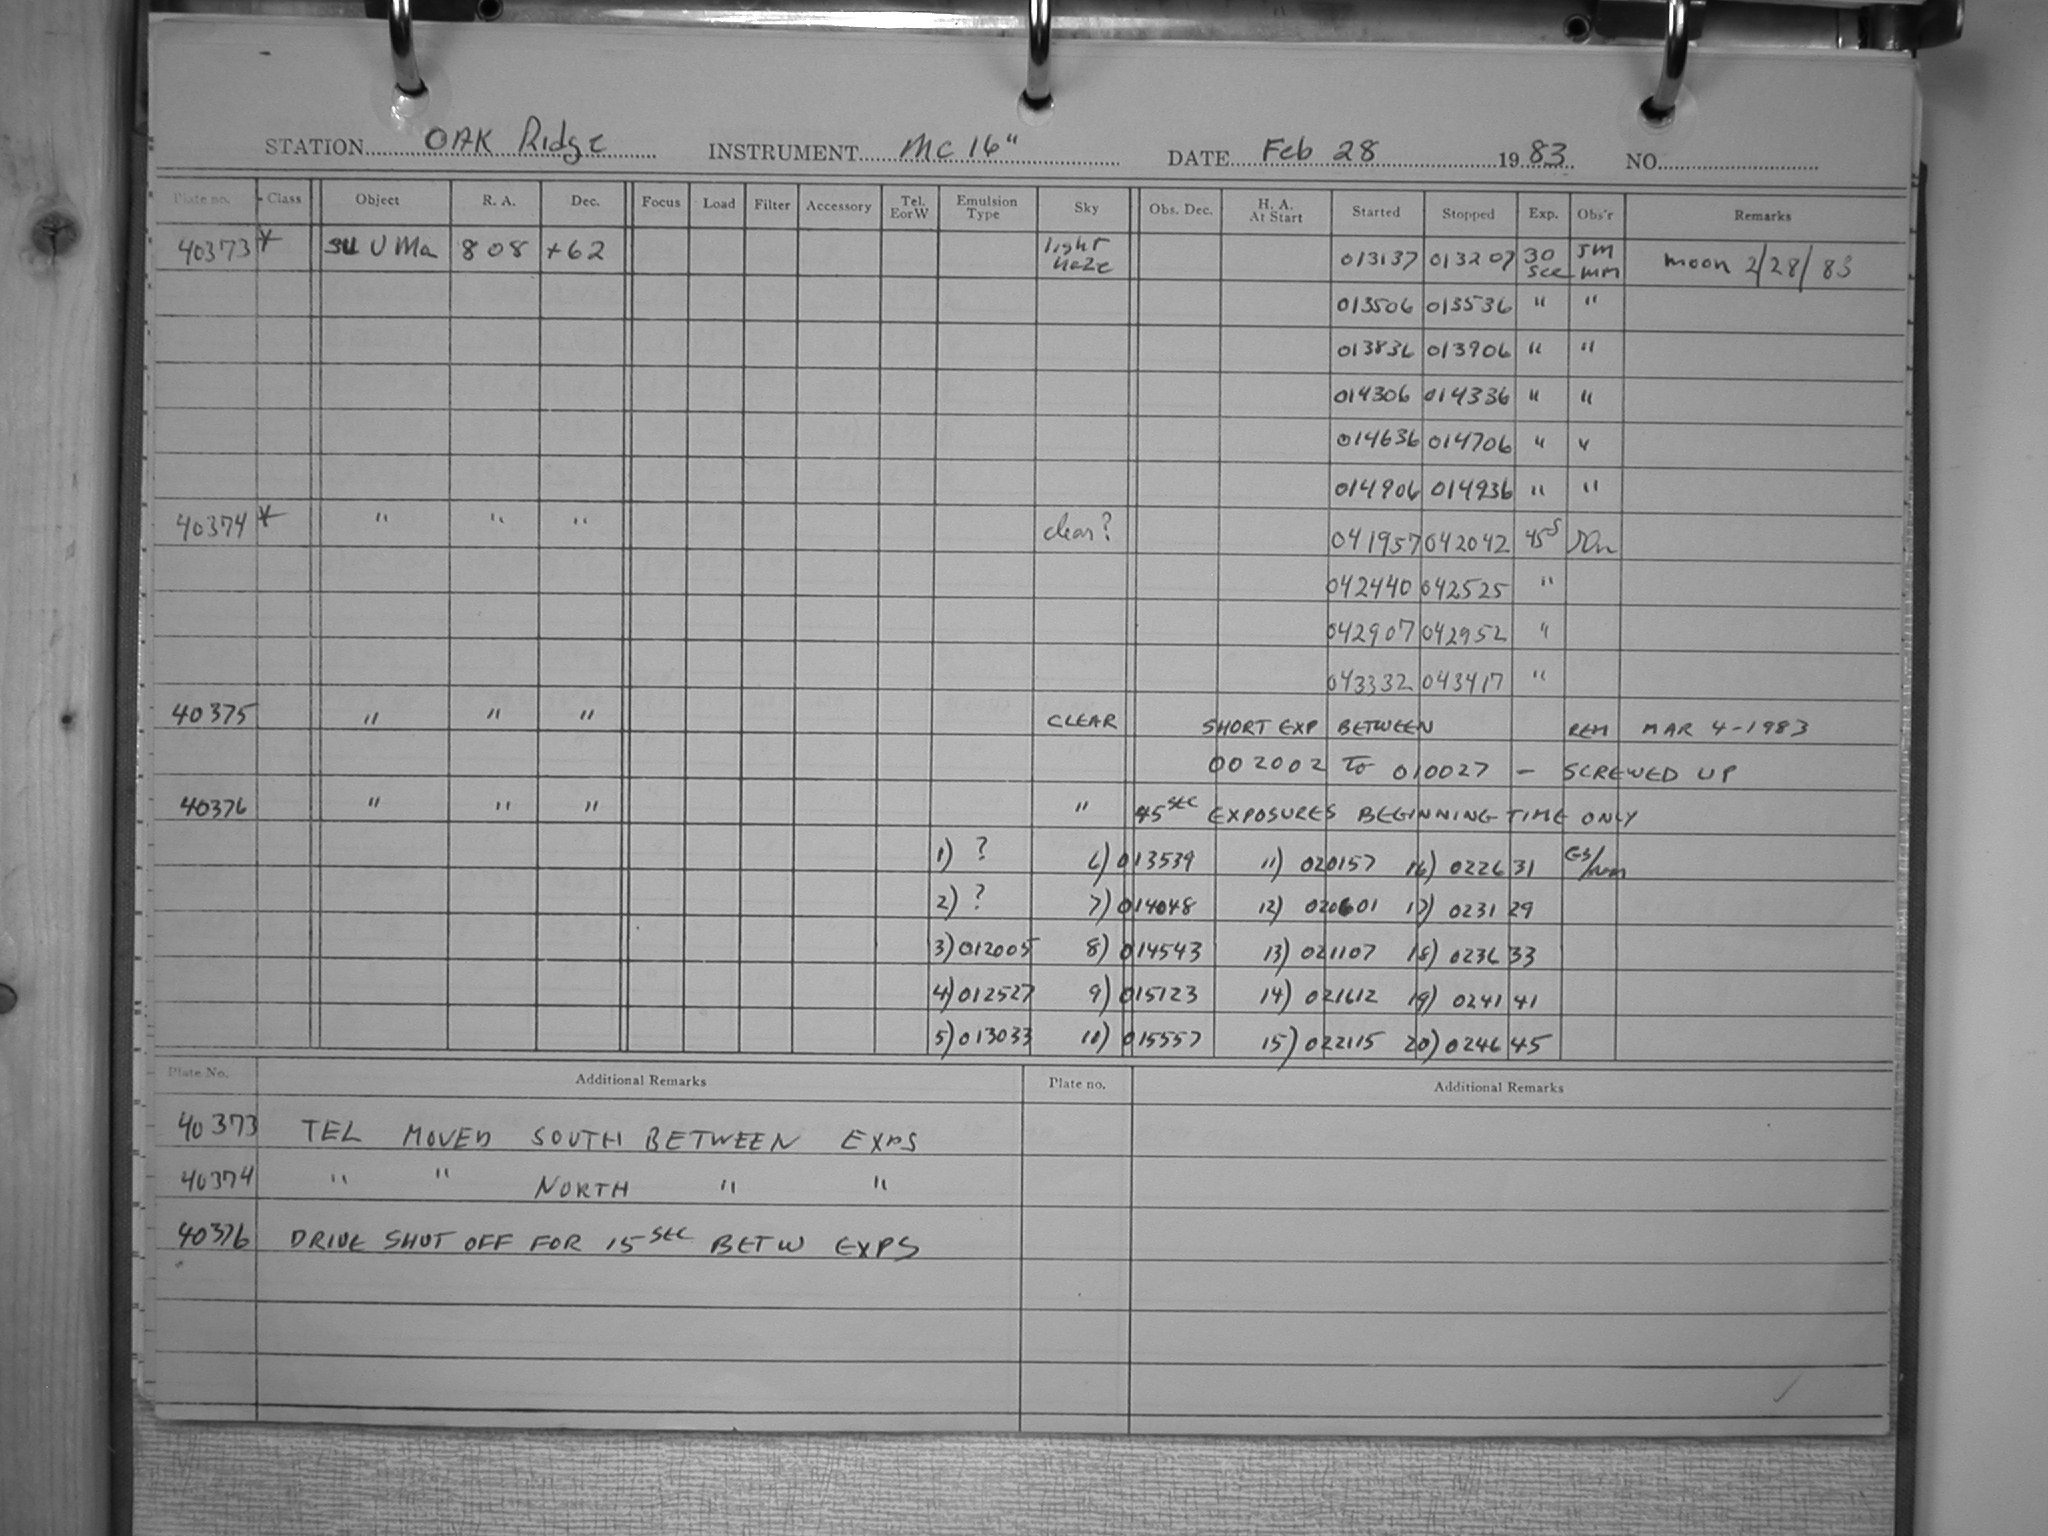 STATION OAK Ridge INSTRUMENT MC 16" DATE Feb 28 1983 NO.
Plate no. Class Object R. A. Dec. Focus Load Filter Accessory Tel. E or W Emulsion Type Sky Obs. Dec. H. A. At Start Started Stopped Exp. Obs'r Remarks
40373 * SU U Ma 8 08 +62 light haze 013137 013207 30 sec JM MM moon 2/28/83
013506 013536 " "
013836 013906 " "
014306 014336 " "
014636 014706 " "
014906 014936 " "
40374 * " " " clear? 041957 042042 45s
042440 042525 "
042907 042952 "
043332 043417 "
40375 " " " CLEAR SHORT EXP BETWEEN REM MAR 4-1983
002002 TO 010027 — SCREWED UP
40376 " " " " 45 SEC EXPOSURES BEGINNING TIME ONLY
1) ? 6) 013539 11) 020157 16) 022631 GS/MM
2) ? 7) 014048 12) 020601 17) 023129
3) 012005 8) 014543 13) 021107 18) 023633
4) 012527 9) 015123 14) 021612 19) 024141
5) 013033 10) 015557 15) 022115 20) 024645
Plate No. Additional Remarks Plate no. Additional Remarks
40373 TEL MOVED SOUTH BETWEEN EXPS
40374 " " NORTH " "
40376 DRIVE SHUT OFF FOR 15 SEC BETW EXPS